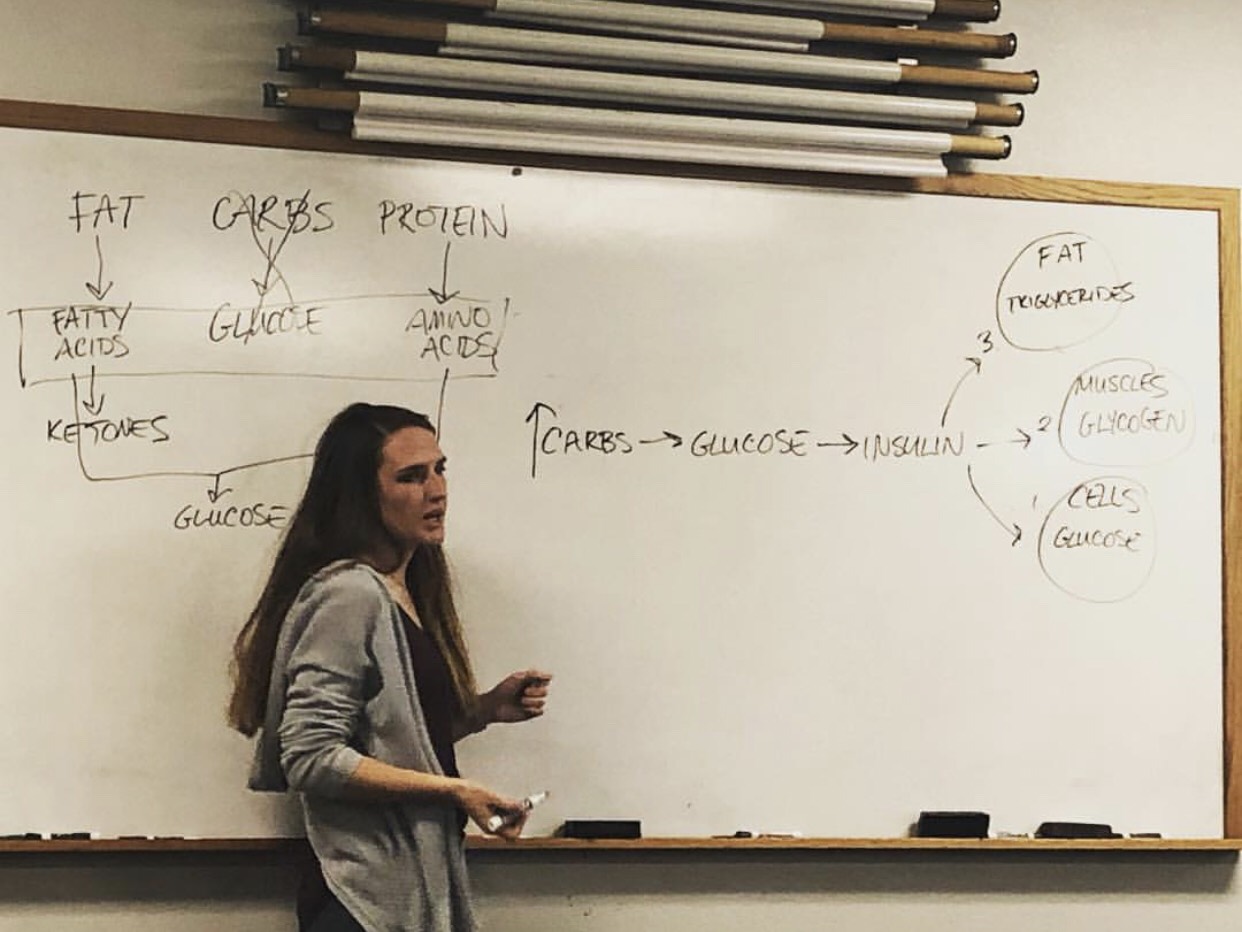 FAT CARBS PROTEIN
FATTY ACIDS GLUCOSE AMINO ACIDS
KETONES
GLUCOSE
↑CARBS → GLUCOSE → INSULIN
3
FAT
TRIGLYCERIDES
2
MUSCLES
GLYCOGEN
1
CELLS
GLUCOSE